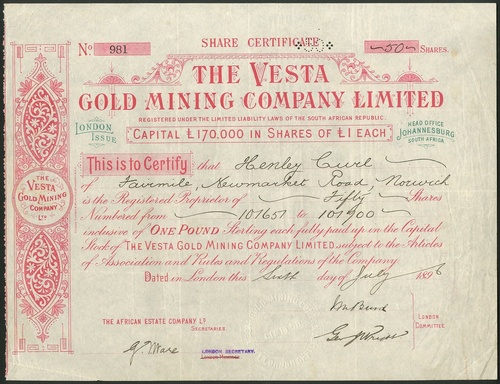 SHARE CERTIFICATE
No 981
50 SHARES.
THE VESTA
GOLD MINING COMPANY LIMITED
REGISTERED UNDER THE LIMITED LIABILITY LAWS OF THE SOUTH AFRICAN REPUBLIC.
LONDON ISSUE
CAPITAL £170,000 IN SHARES OF £1 EACH
HEAD OFFICE
JOHANNESBURG
SOUTH AFRICA
This is to Certify that Henley Curl
of Fairmile, Newmarket Road, Norwich
is the Registered Proprietor of Fifty Shares
Numbered from 101651 to 101900
inclusive of ONE POUND Sterling each fully paid up in the Capital
Stock of THE VESTA GOLD MINING COMPANY LIMITED subject to the Articles
of Association and Rules and Regulations of the Company.
Dated in London this Sixth day of July 1896
THE
VESTA
GOLD MINING
COMPANY
LD
THE AFRICAN ESTATE COMPANY LD
SECRETARIES.
LONDON
COMMITTEE.
G. Ware
LONDON SECRETARY.